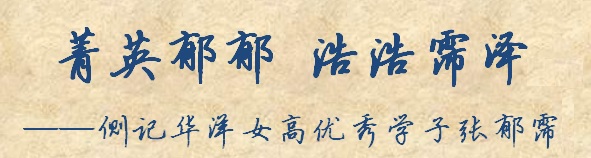 菁英郁郁 浩浩霈泽
——侧记华洋女高优秀学子张郁霈